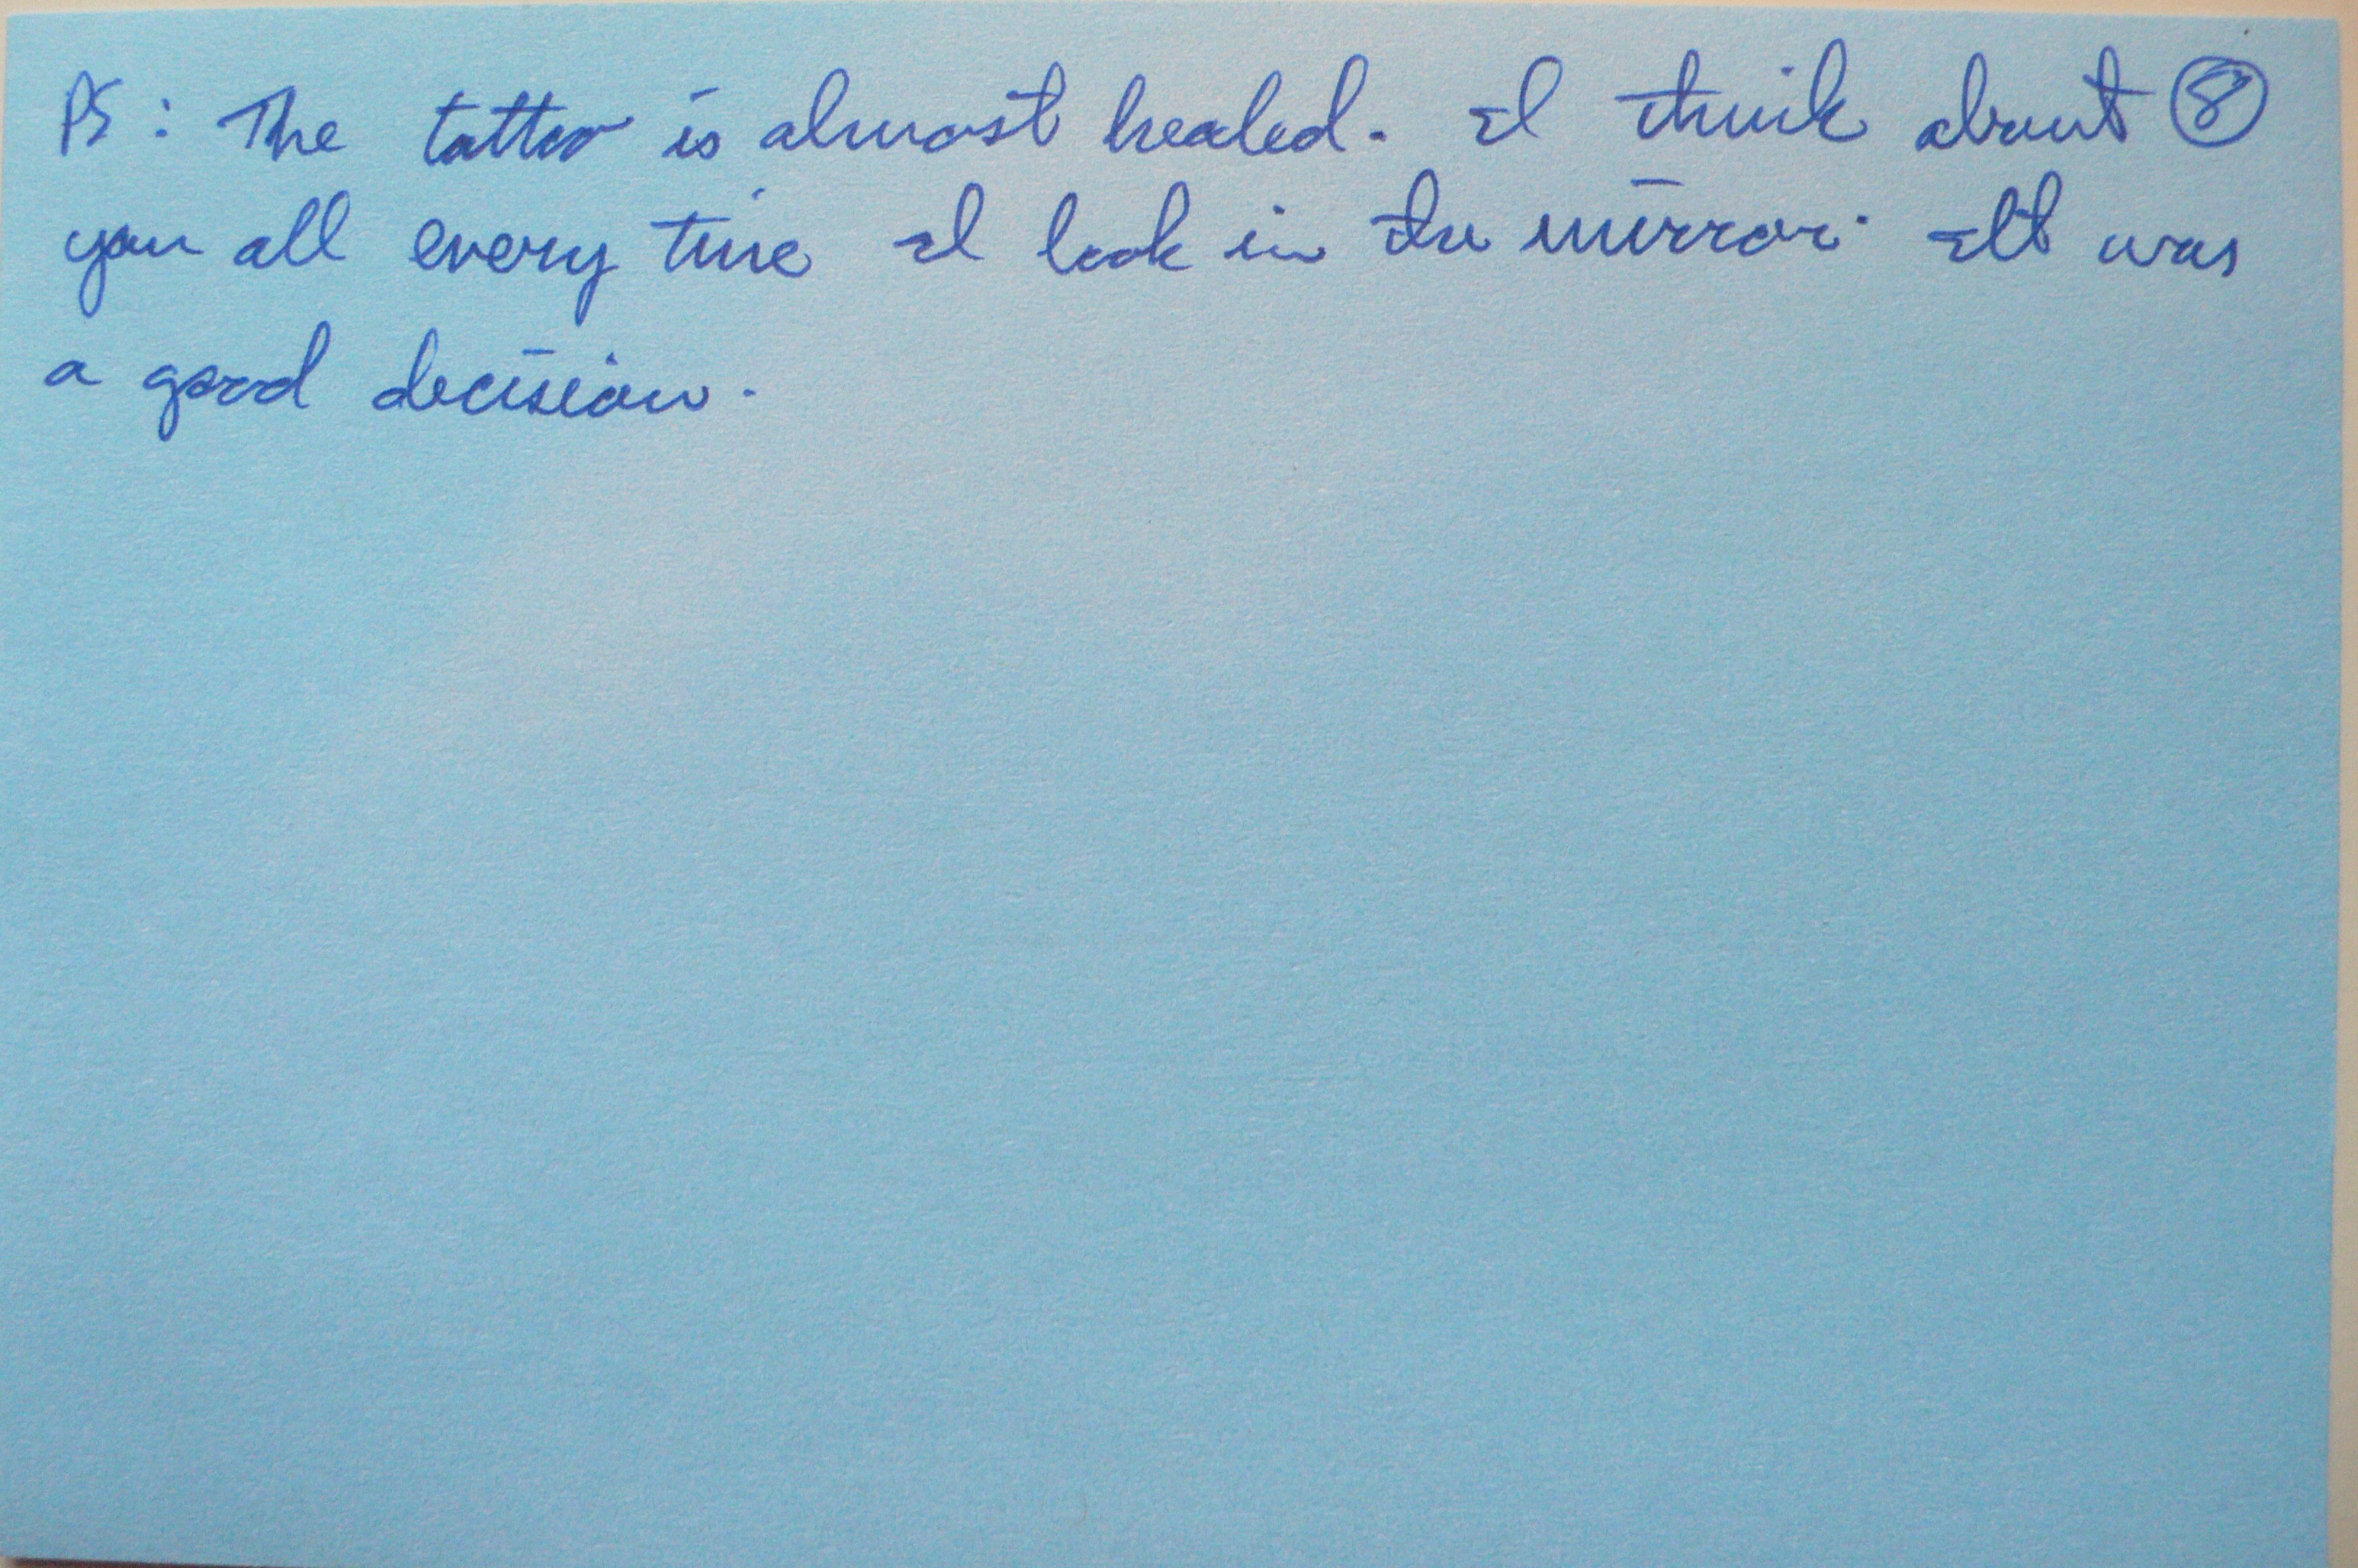 PS: The tattoo is almost healed. I think about ⑧
you all every time I look in the mirror. It was
a good decision.